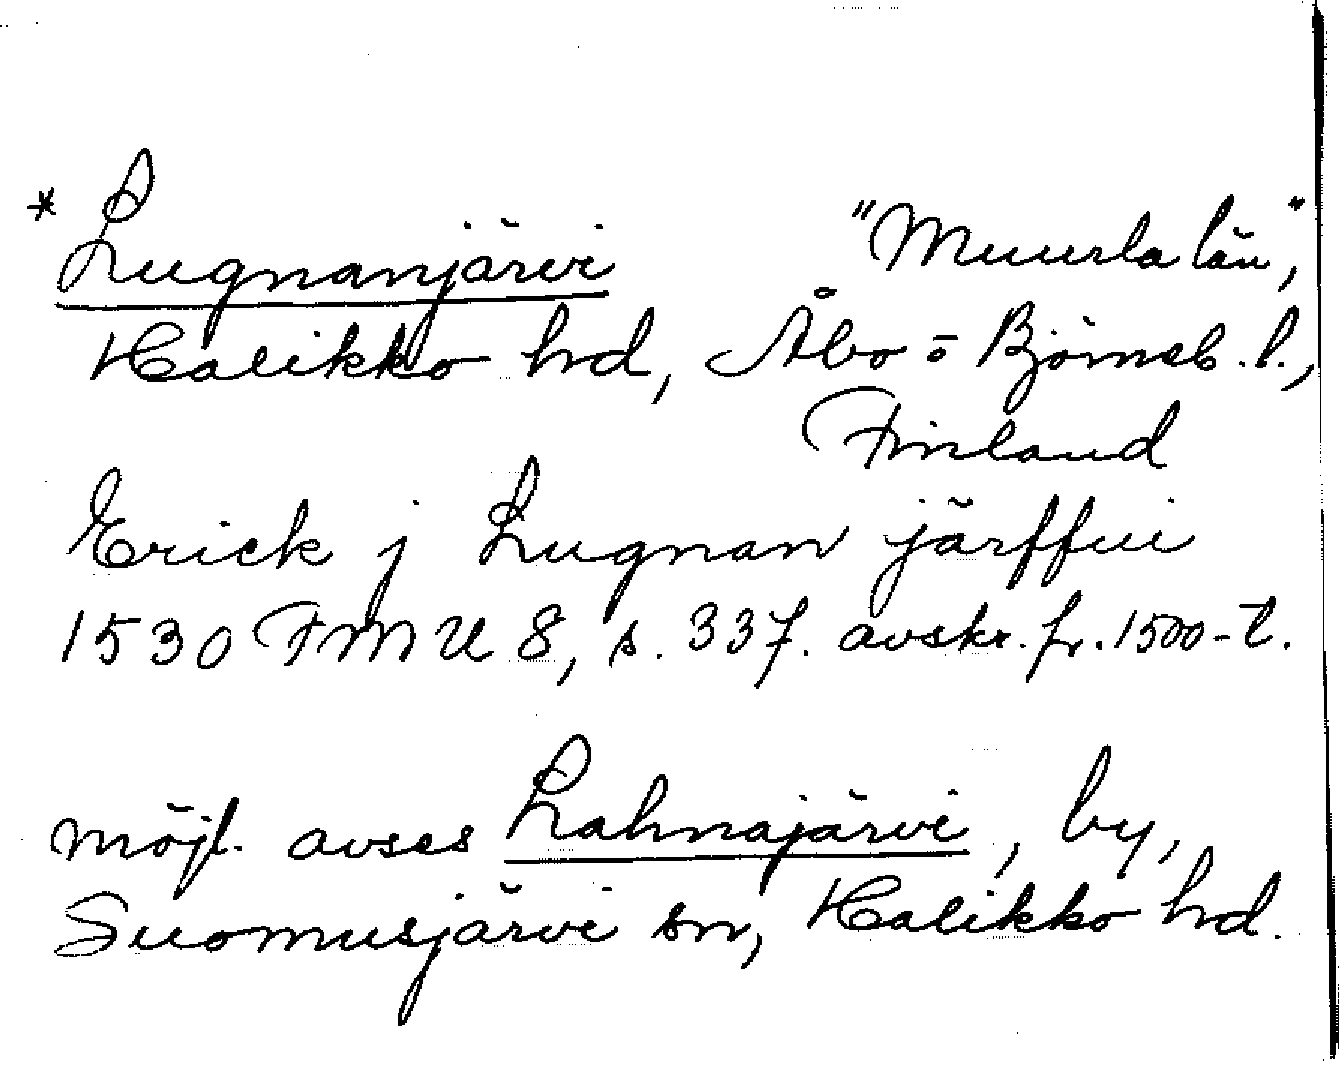 * Lugnanjärvi "Muurla län",
Halikko hd, Åbo o Björneb. l.,
Finland
Erick j Lugnan järffui
1530 FMU 8, s. 337. avskr. fr. 1500-t.
möjl. avses Lahnajärvi, by,
Suomusjärvi sn, Halikko hd.